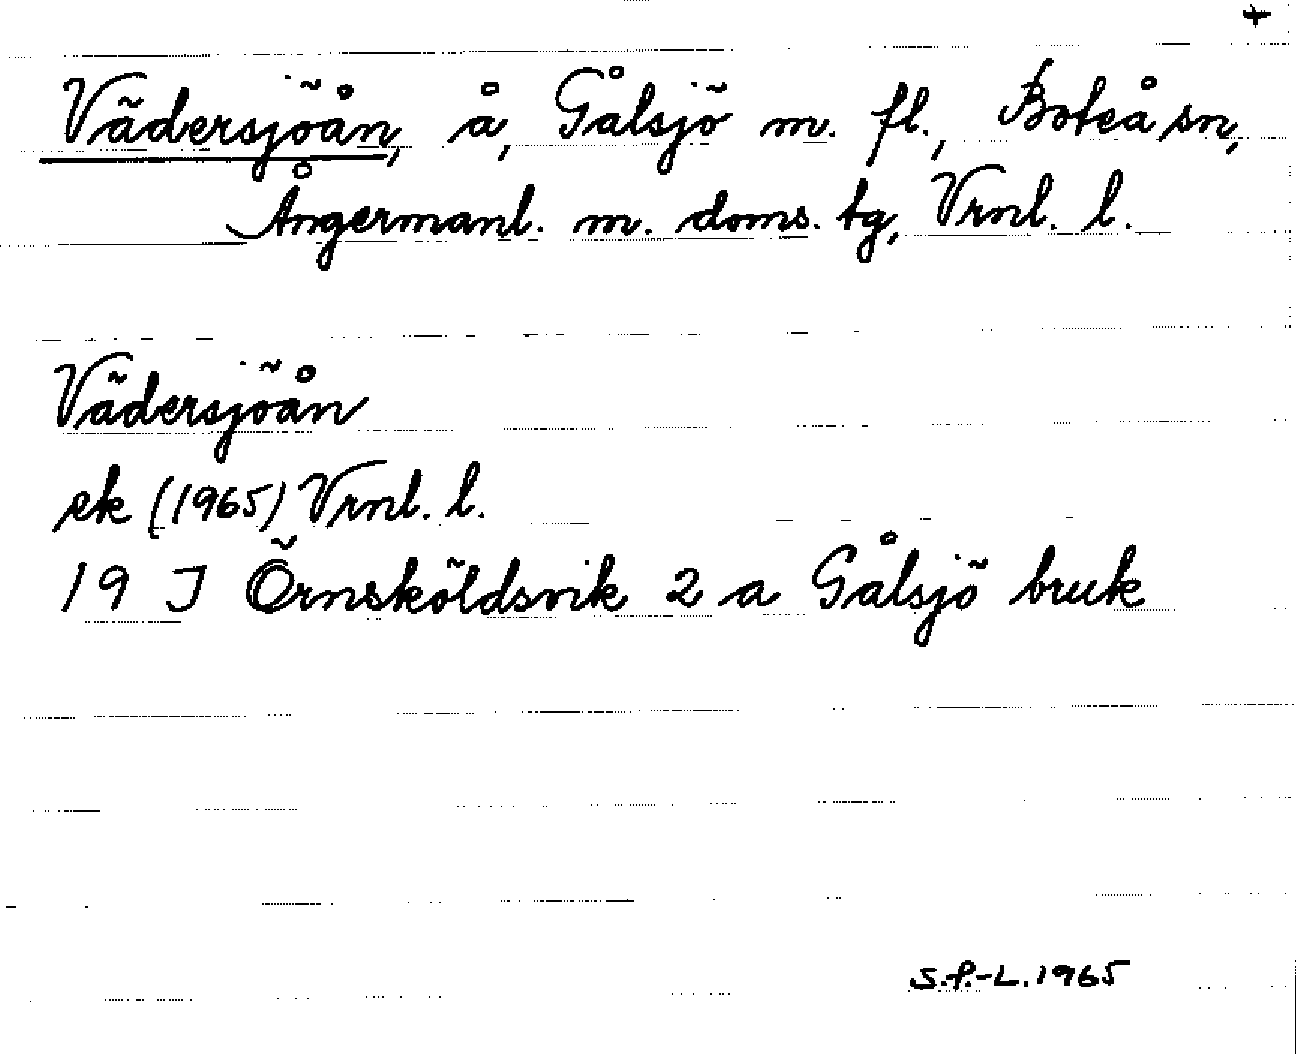 +
Vädersjöån, å, Gålsjö m. fl., Boteå sn,
Ångermanl. m. doms. tg, Vrnl. l.
Vädersjöån
ek (1965) Vrnl. l.
19 J Örnsköldsvik 2 a Gålsjö bruk
S.P.-L. 1965